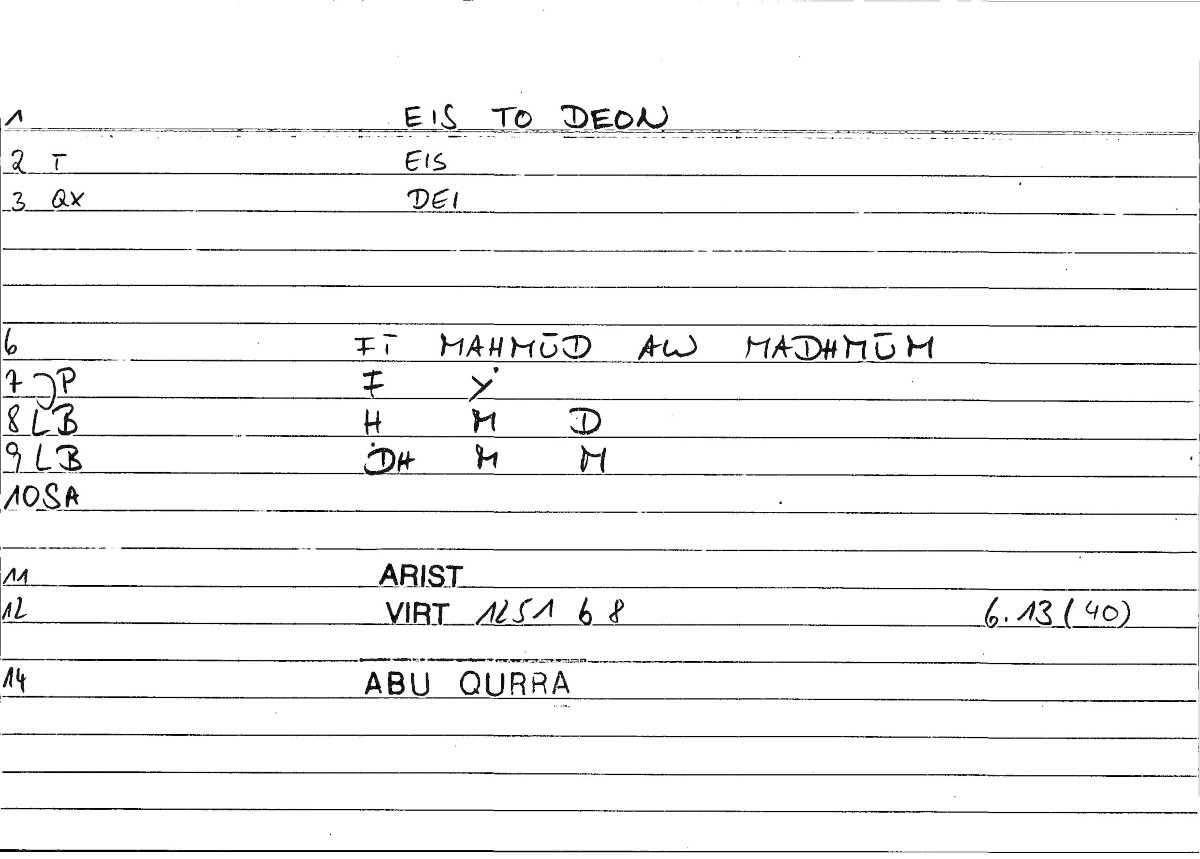 1 EIS TO DEON
2 T EIS
3 QX DEI
6 FĪ MAHMŪD AW MADHMŪM
7 JP F Y
8 LB H M D
9 LB DH M M
10 SA
11 ARIST
12 VIRT 1251 b 8 6.13(40)
14 ABU QURRA